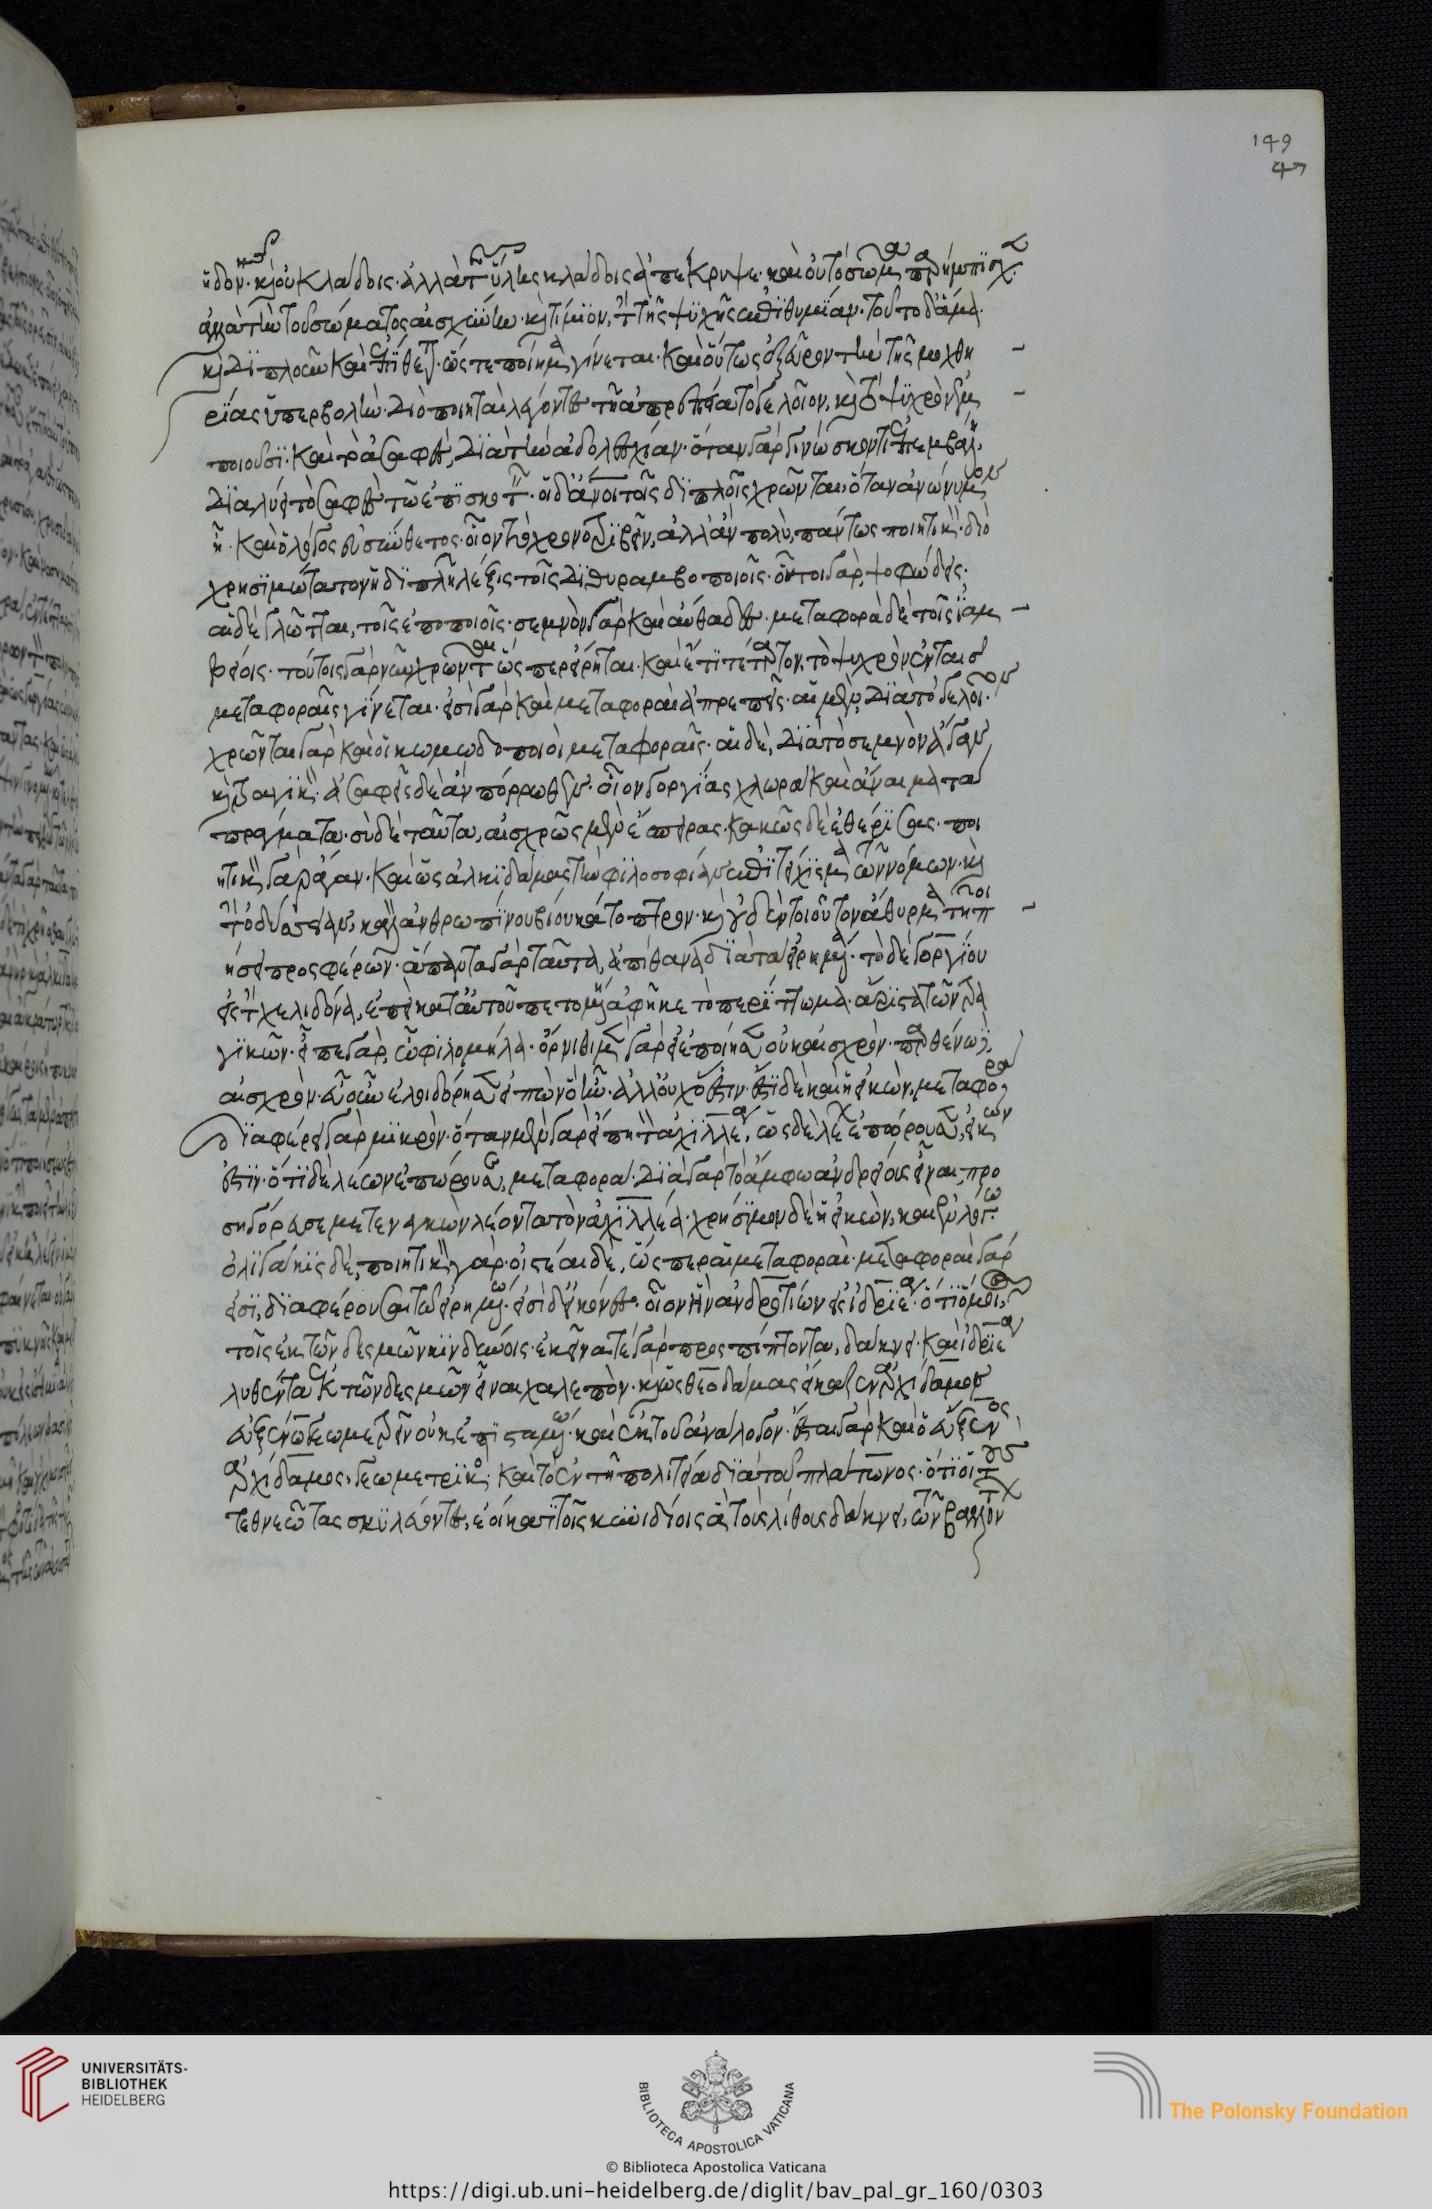 ἡδονήν· καὶ οὐ κλάδοις· ἀλλὰ τ ὕλης κλάδοις ἀπέκρυψε· καὶ οὐ τὸ σῶμα παρήμπισχ
ἀλλὰ τὴν τοῦ σώματος αἰσχύνην· καὶ τίμιον, τ τῆς ψυχῆς ἐπιθυμίαν· τοῦτο δ' ἅμα
καὶ διπλοῦν καὶ ἐπίθετ· ὥστε ποίημα γίνεται· καὶ οὕτως ἔξεδρον τὴν τῆς μοχθη
ρίας ὑπερβολήν· διὸ ποιητικ λέγοντες τῇ ἀπρεπείᾳ τὸ γελοῖον, καὶ τὸ ψυχρὸν ἐμ
ποιοῦσι· καὶ τὸ ἀσαφές, διὰ τὴν ἀδολεσχίαν· ὅταν γὰρ γινώσκοντι ἐπεμβάλῃ,
διαλύει τὸ σαφὲς τῷ ἐπισκοτεῖν· οἱ δ' ἄνοι τοῖς διπλοῖς χρῶνται· ὅταν ἀνώνυμον
ᾖ· καὶ ὁ λόγος εὐσύνθετος· οἷον τὸ χρονοτριβεῖν, ἀλλ' ἂν πολὺ, πάντως ποιητικόν· διὸ
χρησιμώτατον ἡ διπλῆ λέξις τοῖς διθυραμβοποιοῖς· οὗτοι γὰρ, ψοφώδεις·
αἱ δὲ γλῶτται, τοῖς ἐποποιοῖς· σεμνὸν γὰρ καὶ αὔθαδες· μεταφορὰ δὲ τοῖς ἰαμ
βείοις· τούτοις γὰρ νῦν χρῶνται ὥσπερ εἴρηται· καὶ ἔτι τέταρτον, τὸ ψυχρὸν ἐν ταῖς
μεταφοραῖς γίνεται· εἰσὶ γὰρ καὶ μεταφοραὶ ἀπρεπεῖς· αἱ μὲν, διὰ τὸ γελοῖον·
χρῶνται γὰρ καὶ οἱ κωμωδοποιοὶ μεταφοραῖς· αἱ δὲ, διὰ τὸ σεμνὸν ἄγαν,
καὶ τραγικόν· ἀσαφεῖς δὲ ἂν πόρρωθεν· οἷον γοργίας χλωρὰ καὶ ἄναιμα τὰ
πράγματα· σὺ δὲ ταῦτα, αἰσχρῶς μὲν ἔσπειρας· κακῶς δὲ ἐθέρισας· ποι
ητικῶς γὰρ ἄγαν· καὶ ὡς ἀλκιδάμας τὴν φιλοσοφίαν ἐπιτείχισμα τῶν νόμων· καὶ
τ ὀδύσσειαν, καλὸν ἀνθρωπίνου βίου κάτοπτρον· καὶ οὐδὲν τοιοῦτον ἄθυρμα τῇ ποι
ήσει προσφέρων· ἅπαντα γὰρ ταῦτα, ἀπίθανα διὰ τὰ εἰρημένα· τὸ δὲ γοργίου
εἰς τ χελιδόνα, ἐπεὶ κατ' αὐτοῦ πετομένη ἀφῆκε τὸ περίττωμα· ἄριστα τῶν τρα
γικῶν· εἶπε γὰρ, ὦ φιλομήλα· ὄρνιθι μὲν γὰρ εἰ ἐποίησεν οὐκ αἰσχρὸν· παρθένῳ δὲ,
αἰσχρὸν· εὖ οὖν ἐλοιδόρησεν εἰπὼν ὃ ἦν· ἀλλ' οὐχ ὅ ἐστιν· ἔστι δὲ καὶ ἡ εἰκὼν, μεταφορά,
διαφέρει γὰρ μικρὸν· ὅταν μὲν γὰρ εἴπῃ τὸν ἀχιλλέα, ὡς δὲ λέων ἐπόρουσεν, εἰκών
ἐστιν· ὅτι δὲ λέων ἐπώρουσεν, μεταφορά· διὰ γὰρ τὸ ἄμφω ἀνδρείους εἶναι, προ
σηγόρευσε μετενεγκὼν λέοντα τὸν ἀχιλλέα· χρήσιμον δὲ ἡ εἰκὼν, καὶ ἐν λόγῳ·
ὀλιγάκις δὲ, ποιητικὸν γάρ· οἰστέαι δὲ, ὥσπερ αἱ μεταφοραί· μεταφοραὶ γάρ
εἰσι, διαφέρουσαι τῷ εἰρημένῳ· εἰσὶ δ' εἰκόνες· οἷον ἣν ἀνδροτίων εἰς ἰδριέα· ὅτι ὅμοιος
τοῖς ἐκ τῶν δεσμῶν κυνιδίοις· ἐκεῖνά τε γὰρ προσπίπτοντα, δάκνει· καὶ ἰδριέα
λυθέντα ἐκ τῶν δεσμῶν εἶναι χαλεπόν· καὶ ὡς θεοδάμας εἴκαζεν ἀρχίδαμον
εὐξένῳ γεωμετρεῖν οὐκ ἐπισταμένῳ· καὶ ἐκ τοῦ ἀνάλογον· ἔσται γὰρ καὶ ὁ εὔξενος,
ἀρχίδαμος, γεωμετρικός· καὶ τὸ ἐν τῇ πολιτείᾳ διὰ τοῦ πλάτωνος· ὅτι οἱ τοὺς
τεθνεῶτας σκυλεύοντες, ἐοίκασι τοῖς κυνιδίοις ἃ τοὺς λίθους δάκνει, τῶν βαλλόντ
149
47
UNIVERSITÄTS-
BIBLIOTHEK
HEIDELBERG
BIBLIOTECA APOSTOLICA VATICANA
© Biblioteca Apostolica Vaticana
The Polonsky Foundation
https://digi.ub.uni-heidelberg.de/diglit/bav_pal_gr_160/0303